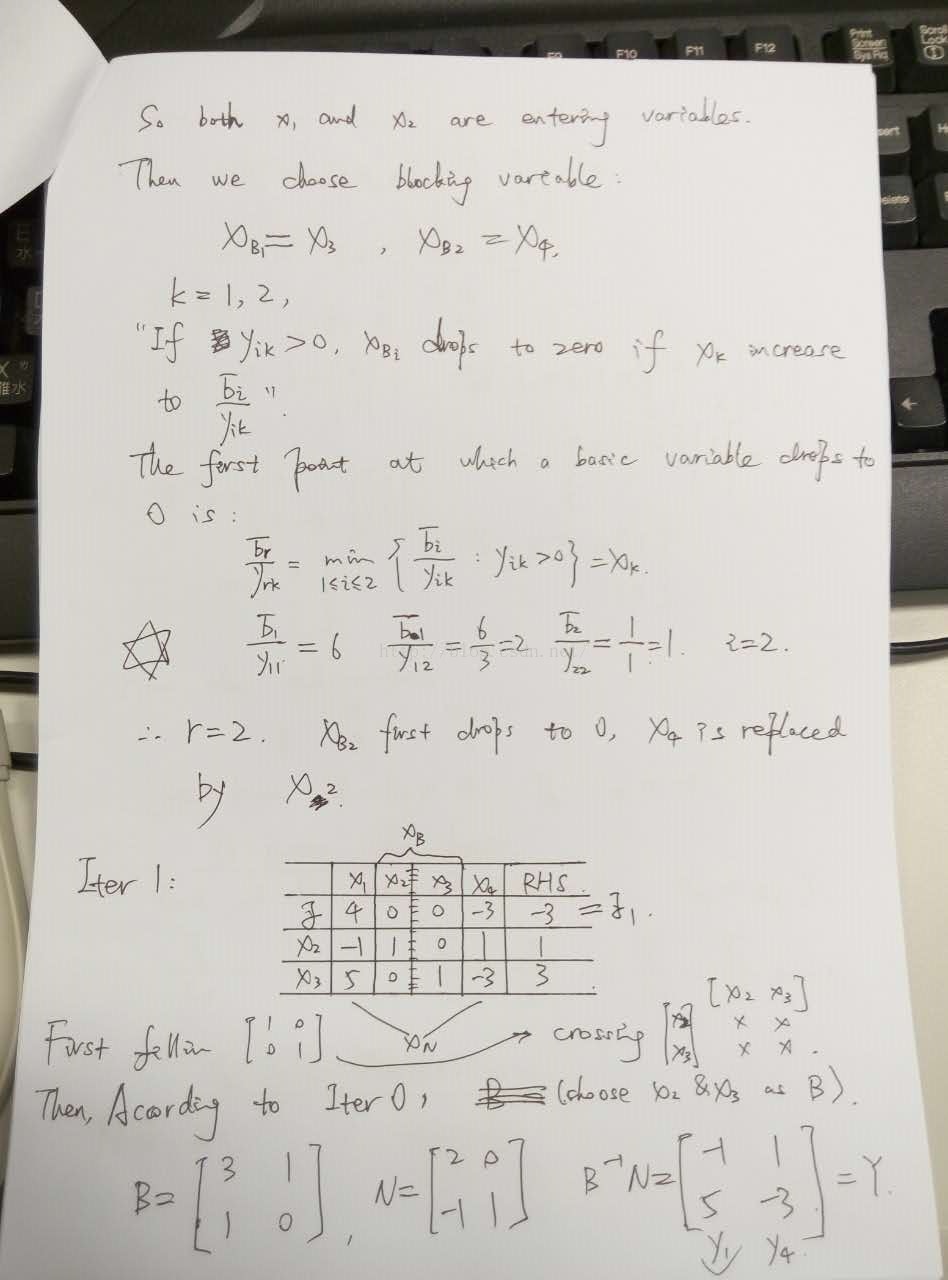 F9 F10 F11 F12 Print Screen Sys Rq Scroll Lock
So both x₁ and x₂ are entering variables.
Then we choose blocking variable:
x_B₁ = x₃ , x_B₂ = x₄,
k = 1, 2,
"If y_ik > 0, x_Bi drops to zero if x_k increase
to b̄_i / y_ik ".
The first point at which a basic variable drops to
0 is:
b̄_r / y_rk = min 1≤i≤2 { b̄_i / y_ik : y_ik > 0 } = x_k.
b̄₁ / y₁₁ = 6 b̄₁ / y₁₂ = 6/3 = 2 b̄₂ / y₂₂ = 1/1 = 1. i=2.
∴ r = 2. x_B₂ first drops to 0, x₄ is replaced
by x₂.
x_B
Iter 1:
x₁ x₂ x₃ x₄ RHS
z 4 0 0 -3 -3 = z₁.
x₂ -1 1 0 1 1
x₃ 5 0 1 -3 3
x_N
[x₂ x₃]
First fellin [1 0; 0 1] → crossing [x₂; x₃] x x x x .
Then, Acording to Iter 0, (choose x₂ & x₃ as B).
B = [3 1; 1 0], N = [2 0; -1 1] B⁻¹N = [-1 1; 5 -3] = Y.
y₁ y₄